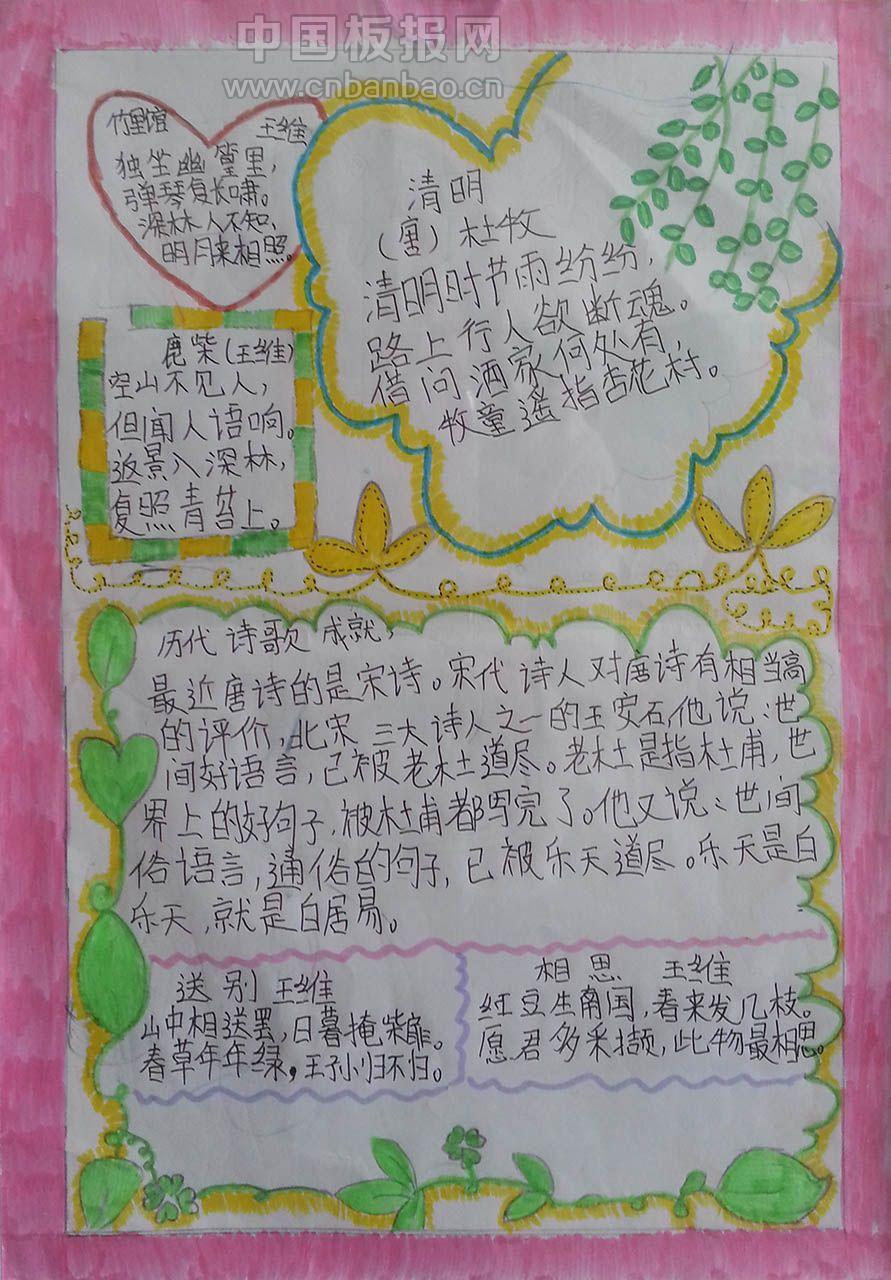 中国板报网
www.cnbanbao.cn
竹里馆 王维
独坐幽篁里，
弹琴复长啸。
深林人不知，
明月来相照。
清明
（唐）杜牧
清明时节雨纷纷，
路上行人欲断魂。
借问酒家何处有，
牧童遥指杏花村。
鹿柴（王维）
空山不见人，
但闻人语响。
返景入深林，
复照青苔上。
历代诗歌成就：
最近唐诗的是宋诗。宋代诗人对唐诗有相当高
的评价，北宋三大诗人之一的王安石，他说：世
间好语言，已被老杜道尽。老杜是指杜甫，世
界上的好句子，被杜甫都写完了。他又说：世间
俗语言，通俗的句子，已被乐天道尽。乐天是白
乐天，就是白居易。
送别 王维
山中相送罢，日暮掩柴扉。
春草年年绿，王孙归不归。
相思 王维
红豆生南国，春来发几枝。
愿君多采撷，此物最相思。